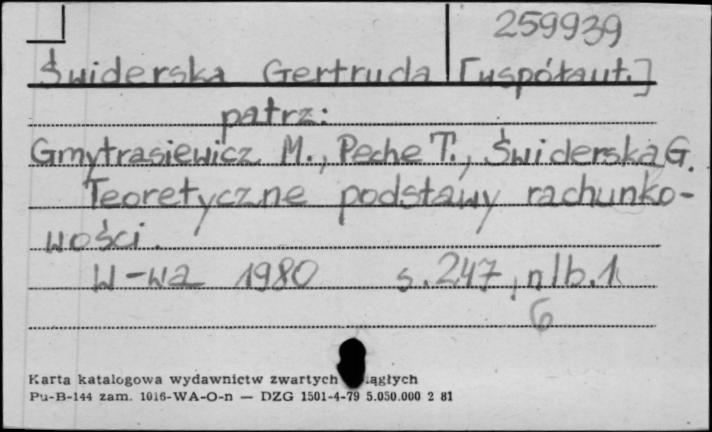 259939
Świderska Gertruda [współaut.]
patrz:
Gmytrasiewicz M., Peche T., Świderska G.
Teoretyczne podstawy rachunko-
wości.
W-wa 1980 s. 247, nlb. 1
6
Karta katalogowa wydawnictw zwartych iągłych
Pu-B-144 zam. 1016-WA-O-n — DZG 1501-4-79 5.050.000 2 81